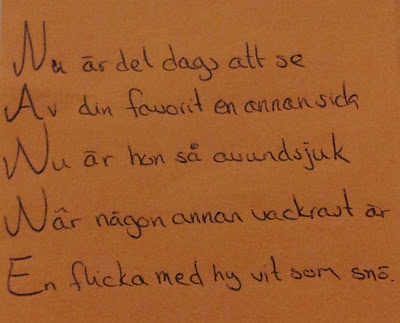 Nu är det dags att se
Av din favorit en annan sida
Nu är hon så avundsjuk
När någon annan vackrast är
En flicka med hy vit som snö.